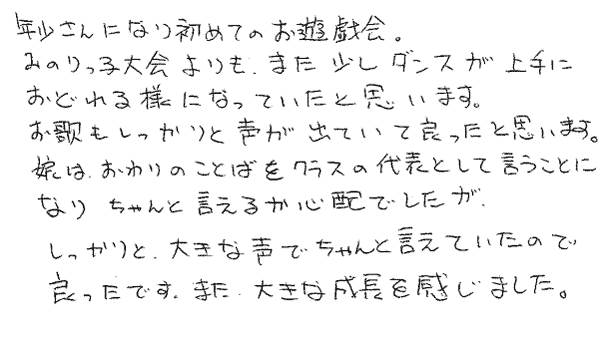 年少さんになり初めてのお遊戯会。
みのりっ子大会よりも、また少しダンスが上手に
おどれる様になっていたと思います。
お歌もしっかりと声が出ていて良ったと思います。
娘は、おわりのことばをクラスの代表として言うことに
なり ちゃんと言えるか心配でしたが、
しっかりと、大きな声でちゃんと言えていたので
良ったです。また、大きな成長を感じました。